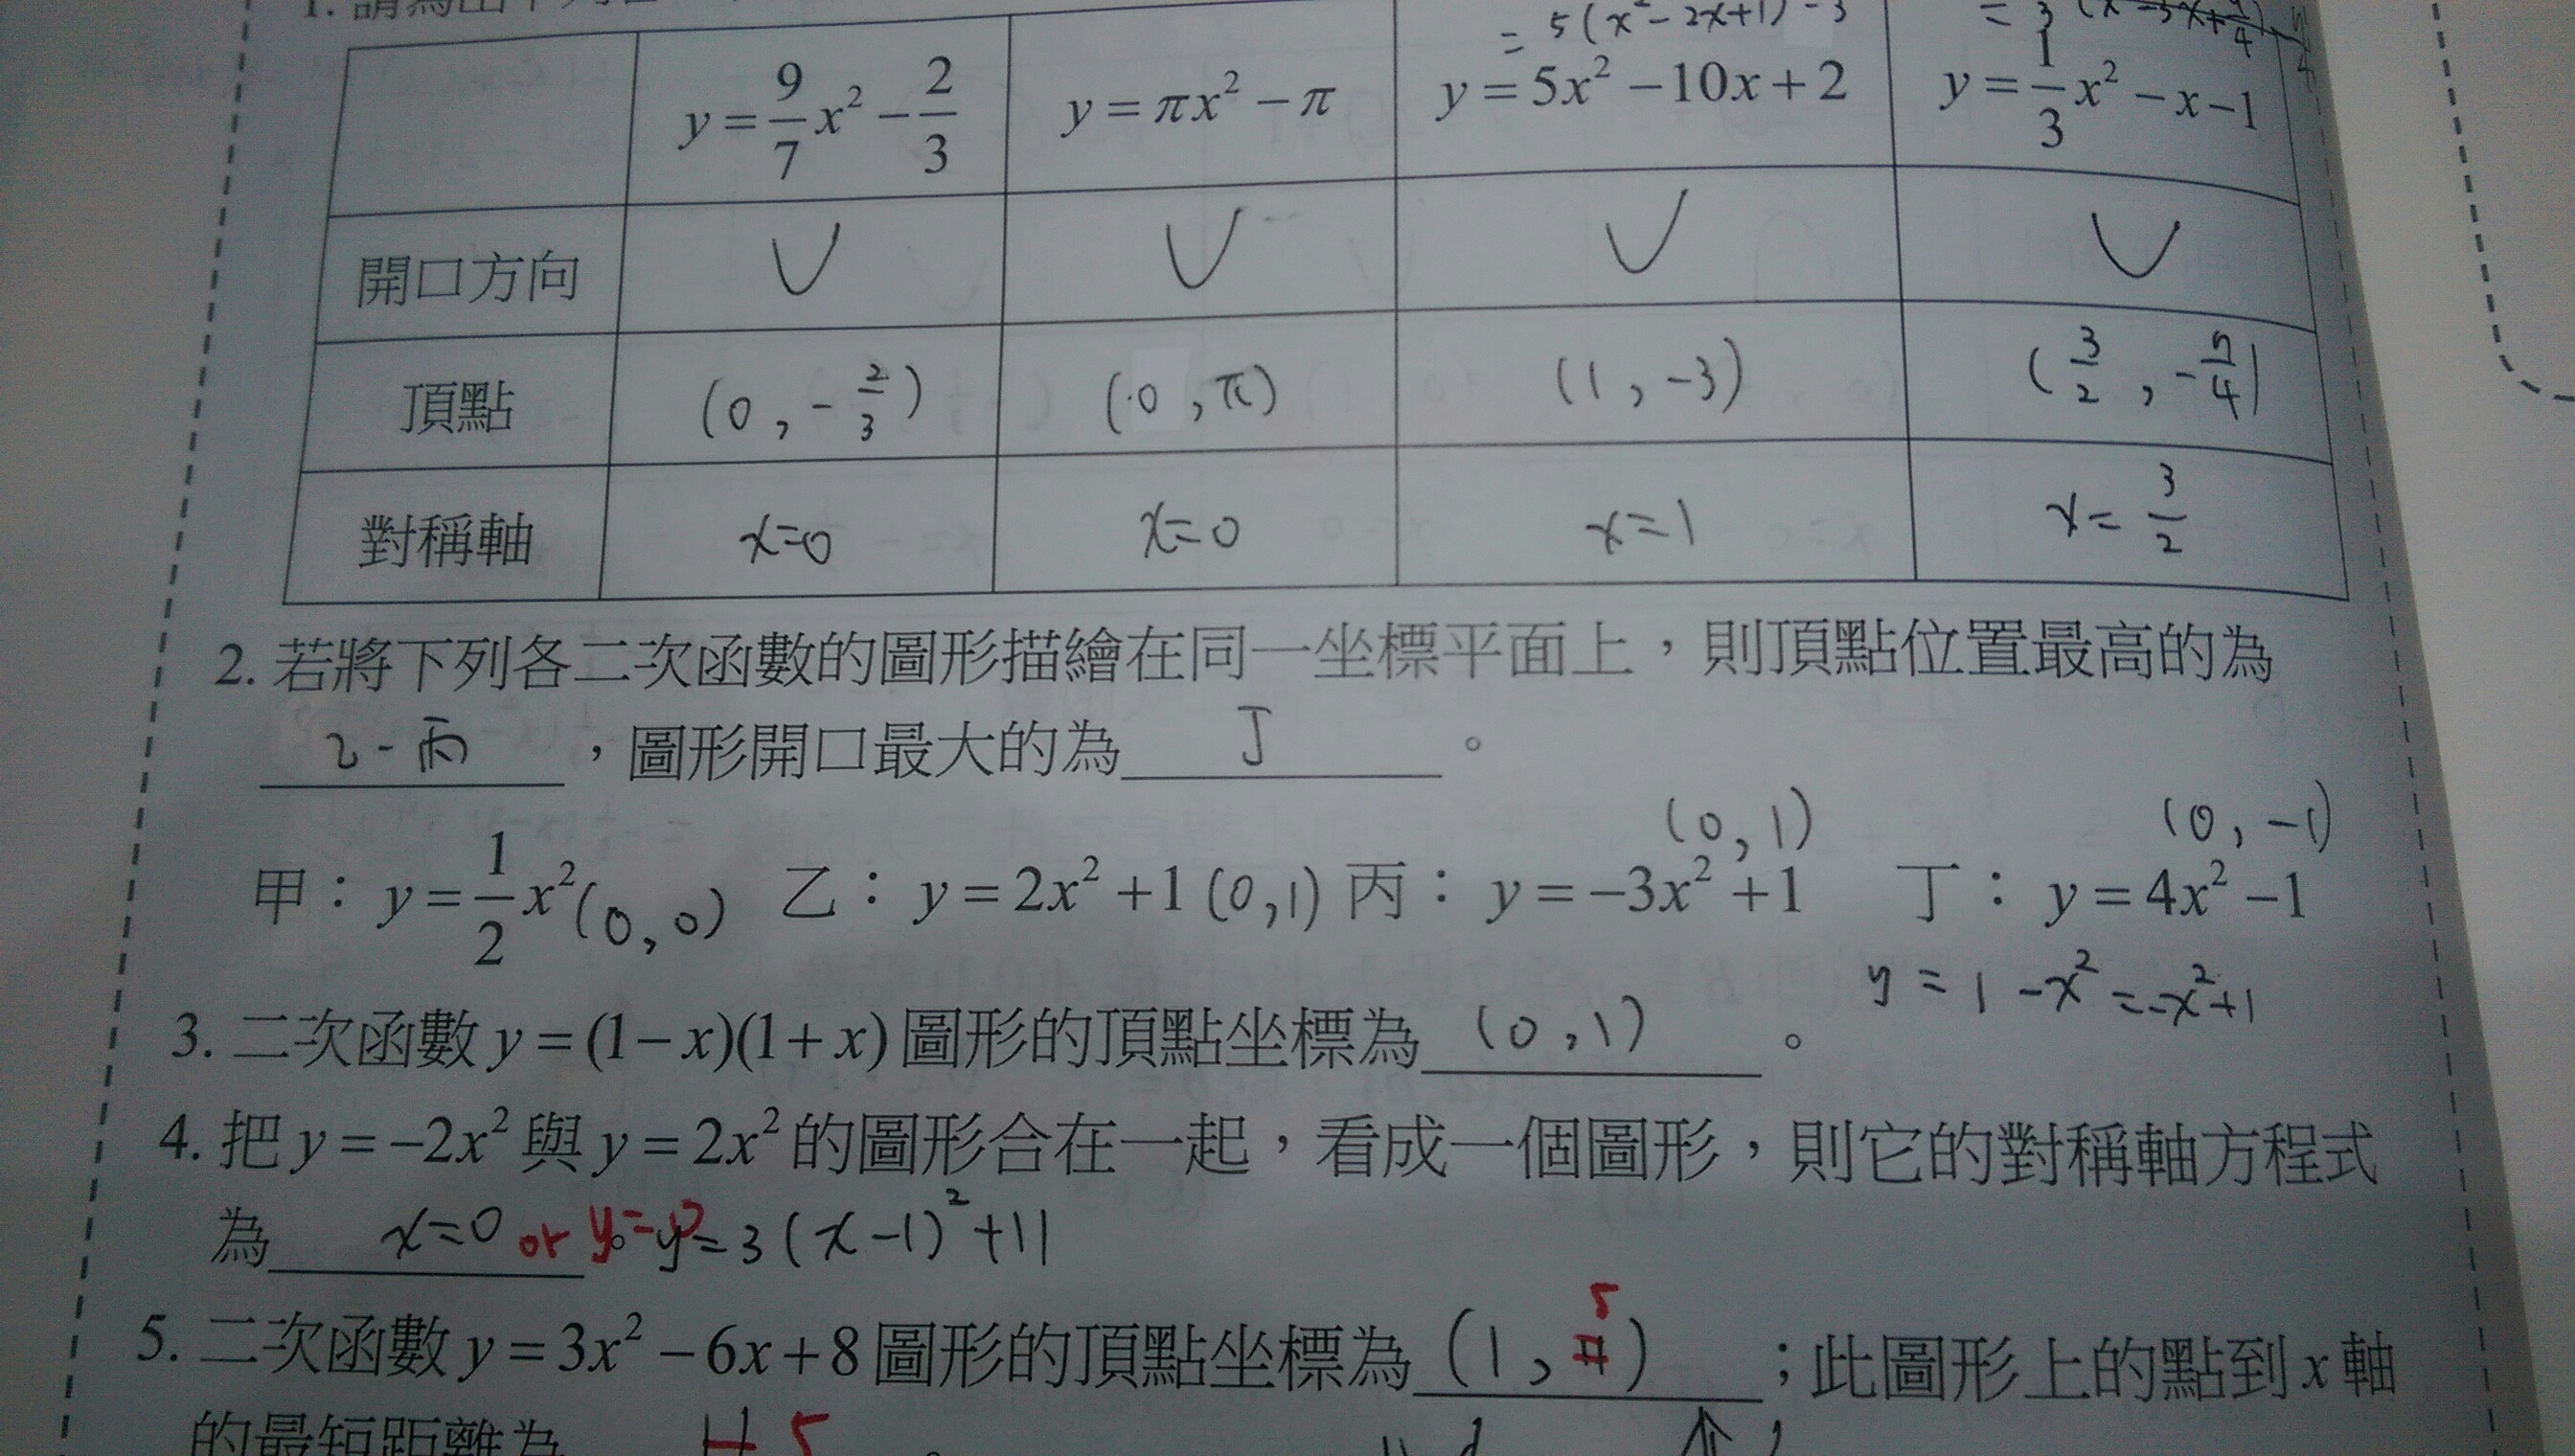 = 5(x²-2x+1)-3
y = 9/7 x² - 2/3 y = πx² - π y = 5x² - 10x + 2 y = 1/3 x² - x - 1
開口方向 ∪ ∪ ∪ ∪
頂點 (0, -2/3) (0, π) (1, -3) (3/2, -5/4)
對稱軸 x=0 x=0 x=1 x=3/2
2. 若將下列各二次函數的圖形描繪在同一坐標平面上，則頂點位置最高的為
乙-丙，圖形開口最大的為 丁。
(0, 1) (0, -1)
甲：y = 1/2 x² (0, 0) 乙：y = 2x² + 1 (0, 1) 丙：y = -3x² + 1 丁：y = 4x² - 1
y = 1 - x² = -x² + 1
3. 二次函數 y = (1 - x)(1 + x) 圖形的頂點坐標為 (0, 1)。
4. 把 y = -2x² 與 y = 2x² 的圖形合在一起，看成一個圖形，則它的對稱軸方程式
為 x=0 or y=0。 y=3(x-1)²+11
5
5. 二次函數 y = 3x² - 6x + 8 圖形的頂點坐標為 (1, 11)；此圖形上的點到 x 軸
的最短距離為 11 5。